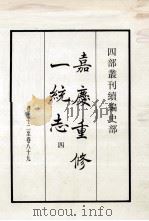 四部叢刊續編史部
嘉慶重修
一統志
四